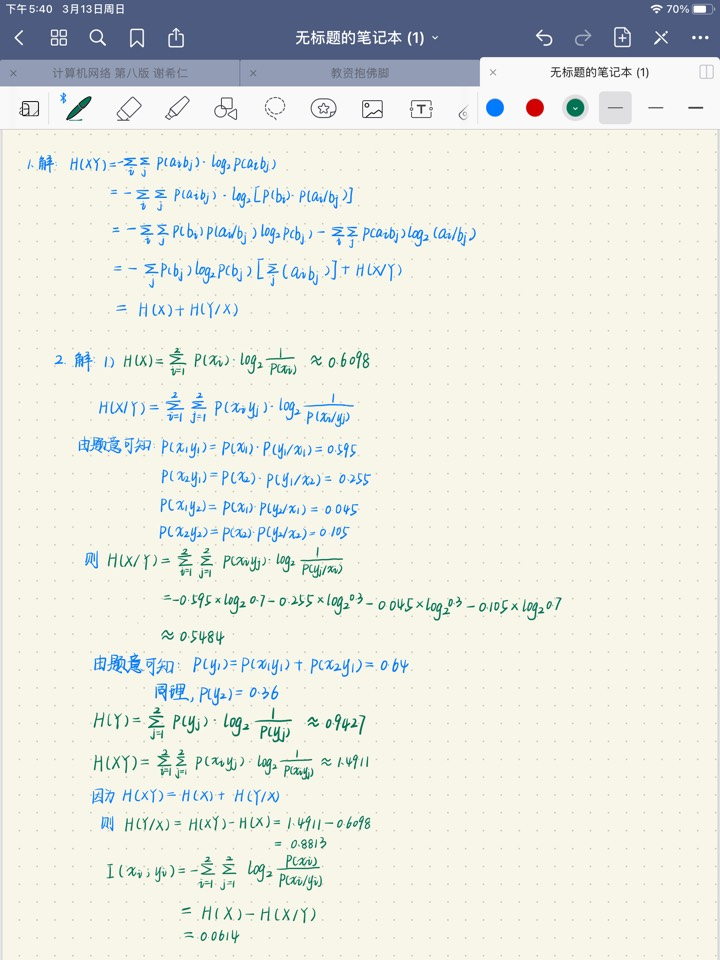 下午5:40 3月13日周日
70%
无标题的笔记本 (1)
计算机网络 第八版 谢希仁
教资抱佛脚
无标题的笔记本 (1)
1.解: H(XY)=-∑i∑j P(aibj)·log₂P(aibj)
=-∑i∑j P(aibj)·log₂[P(bj)·P(ai/bj)]
=-∑i∑j P(bj)P(ai/bj)log₂P(bj)-∑i∑j P(aibj)log₂(ai/bj)
=-∑j P(bj)log₂P(bj)[∑j(aibj)]+H(X/Y)
= H(X)+H(Y/X)
2.解: 1) H(X)=∑i=1^2 P(xi)·log₂ 1/P(xi) ≈0.6098
H(X/Y)=∑i=1^2 ∑j=1^2 P(xiyj)·log₂ 1/P(xi/yj)
由题意可知: P(x₁y₁)=P(x₁)·P(y₁/x₁)=0.595
P(x₂y₁)=P(x₂)·P(y₁/x₂)=0.255
P(x₁y₂)=P(x₁)·P(y₂/x₁)=0.045
P(x₂y₂)=P(x₂)·P(y₂/x₂)=0.105
则 H(X/Y)=∑i=1^2 ∑j=1^2 P(xiyj)·log₂ 1/P(yj/xi)
=-0.595×log₂0.7-0.255×log₂0.3-0.045×log₂0.3-0.105×log₂0.7
≈0.5484
由题意可知: P(y₁)=P(x₁y₁)+P(x₂y₁)=0.64
同理,P(y₂)=0.36
H(Y)=∑j=1^2 P(yj)·log₂ 1/P(yj) ≈0.9427
H(XY)=∑i=1^2 ∑j=1^2 P(xiyj)·log₂ 1/P(xiyj) ≈1.4911
因为 H(XY)=H(X)+H(Y/X)
则 H(Y/X)=H(XY)-H(X)=1.4911-0.6098
=0.8813
I(xi;yi)=-∑i=1^2 ∑j=1^2 log₂ P(xi)/P(xi/yi)
= H(X)-H(X/Y)
=0.0614